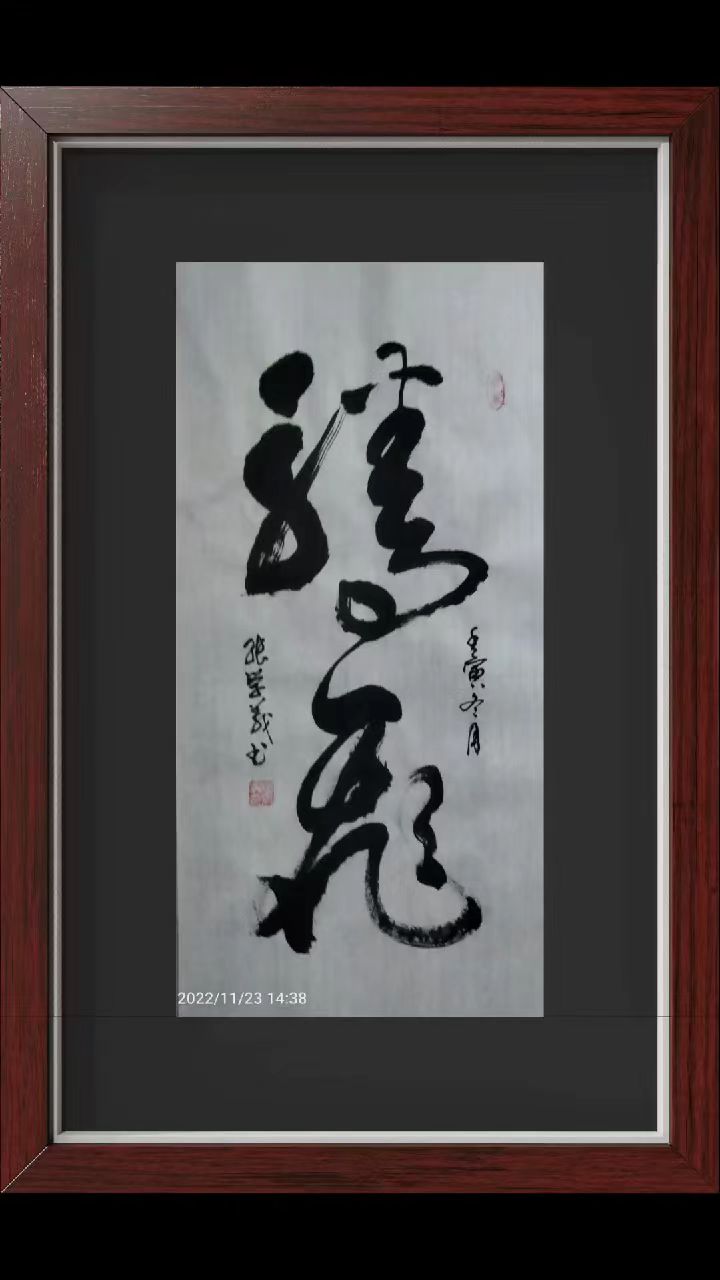 飛
壬寅冬月
張学義书
2022/11/23 14:38